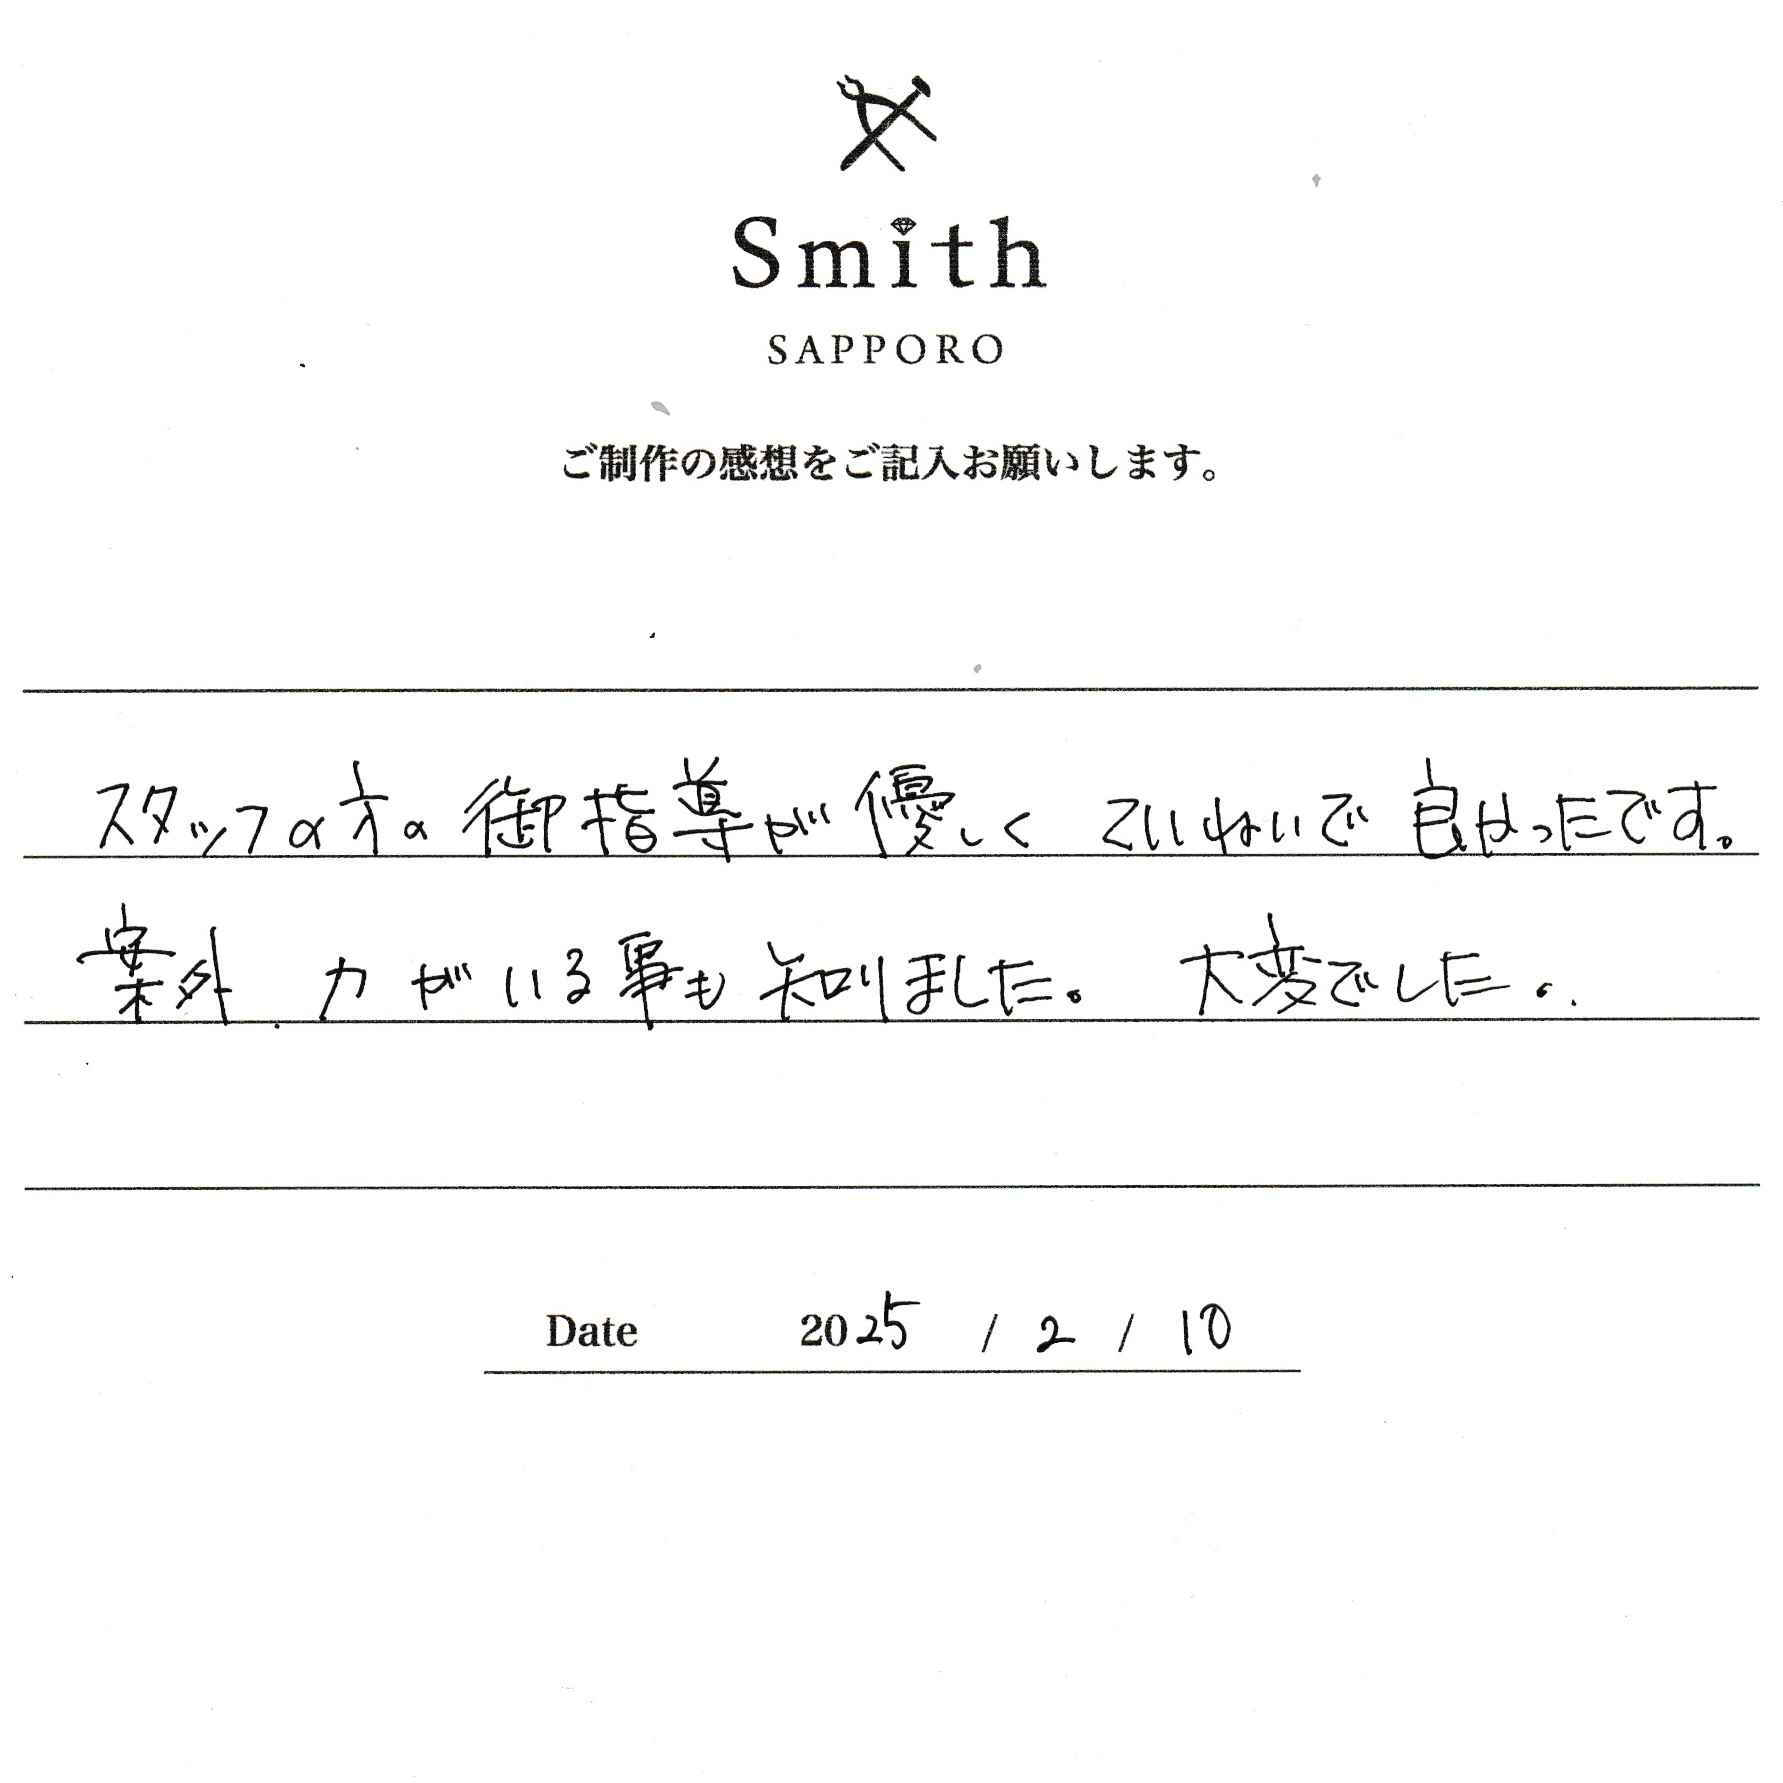 Smith
SAPPORO
ご制作の感想をご記入お願いします。
スタッフの方の御指導が優しくていねいで良かったです。
案外 力がいる事も知りました。 大変でした。
Date 2025 / 2 / 10